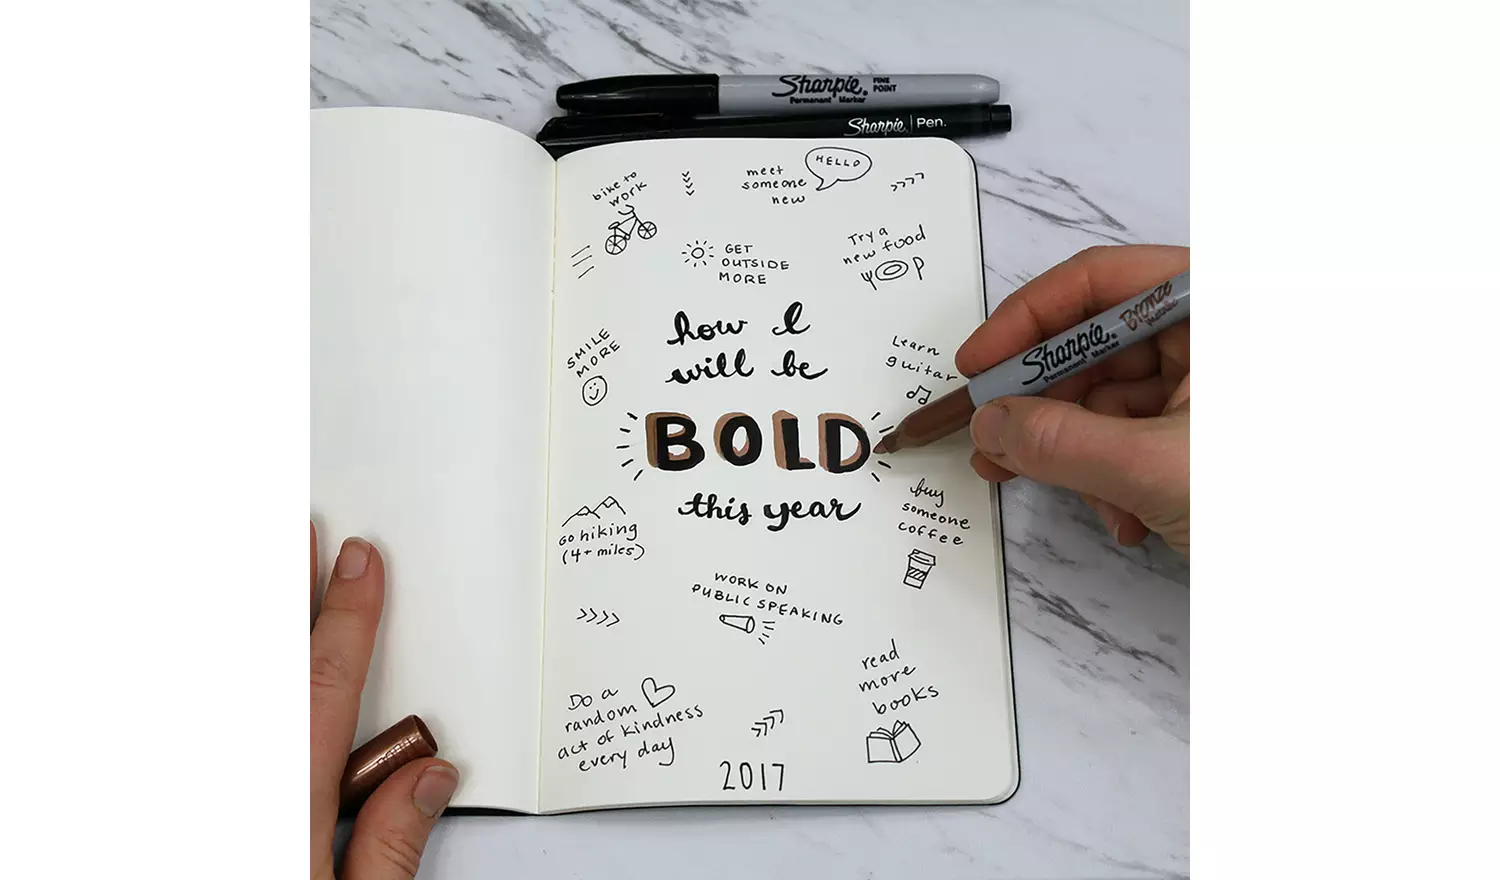 Sharpie. FINE POINT
Permanent Marker
Sharpie. Pen.
bike to
work
meet
someone
new
HELLO
GET
OUTSIDE
MORE
Try a
new food
SMILE
MORE
how I
will be
BOLD
this year
Learn
guitar
Sharpie.
Permanent Marker
Bronze
Metallic
GO hiking
(4+ miles)
buy
someone
coffee
WORK ON
PUBLIC SPEAKING
Do a
random
act of kindness
every day
read
more
books
2017